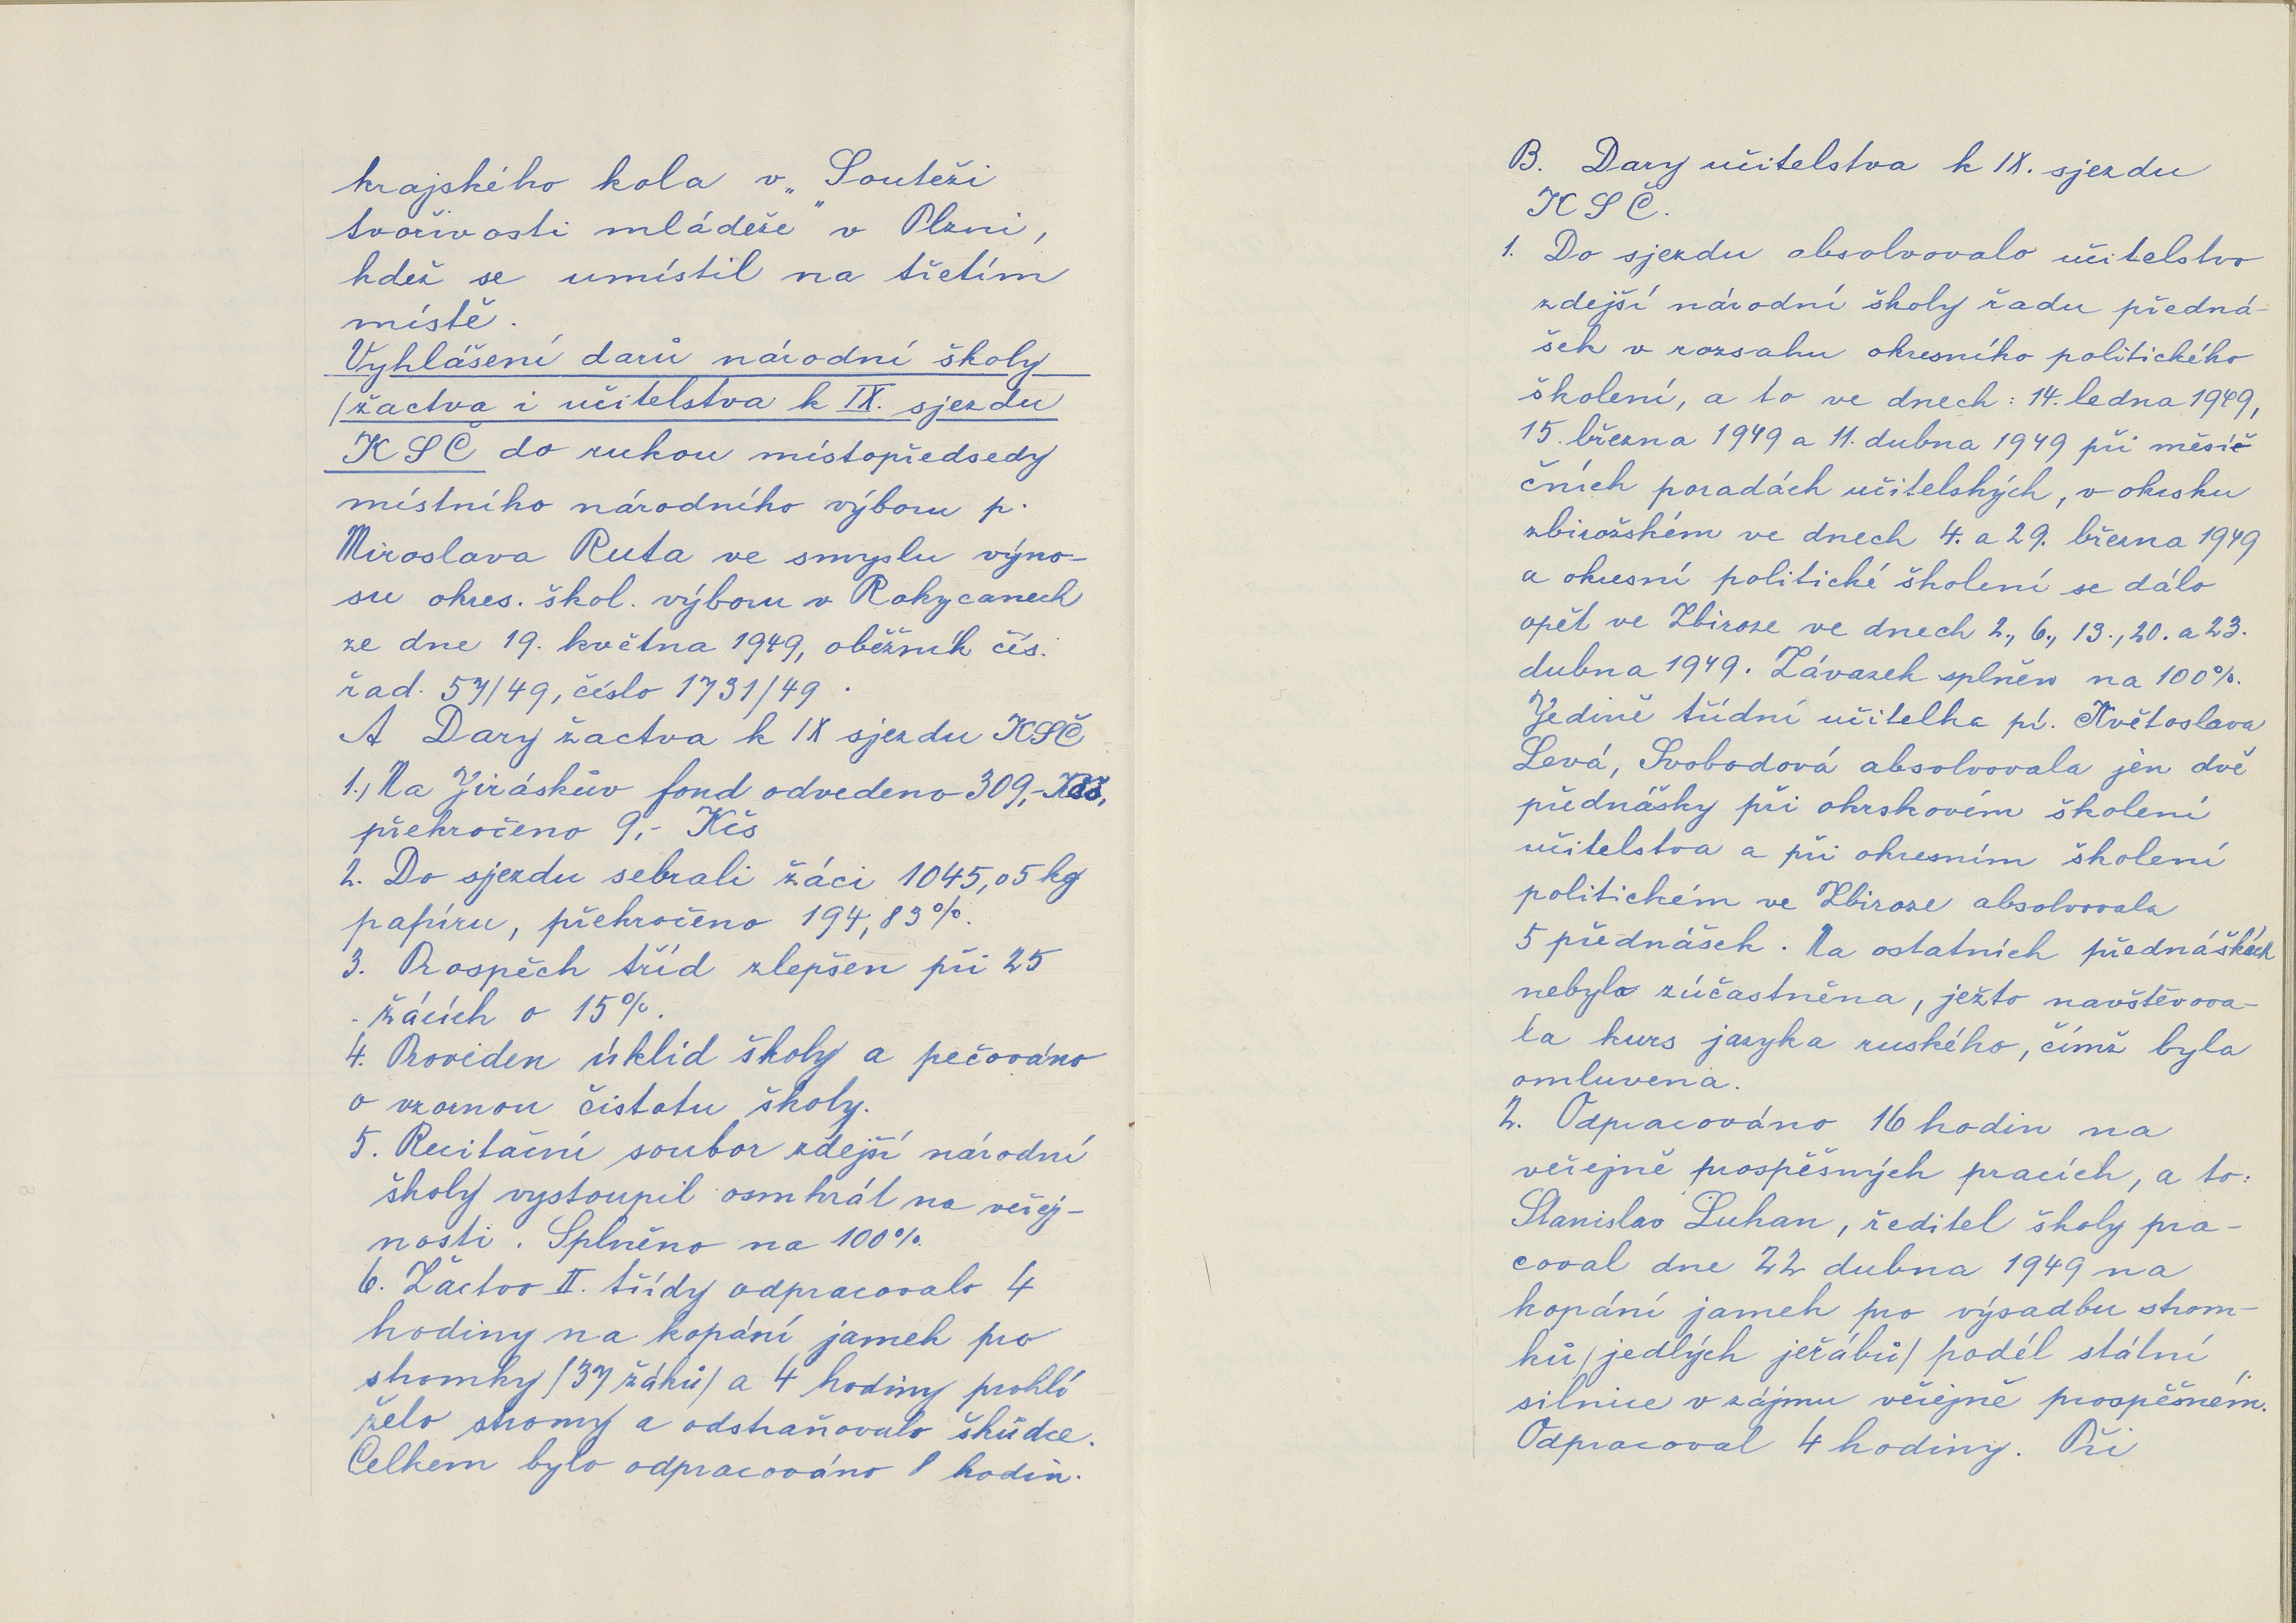 krajského kola v „Soutěži
tvořivosti mládeže" v Plzni,
kdež se umístil na třetím
místě.
Vyhlášení darů národní školy
/žactva i učitelstva k IX. sjezdu
KSČ do rukou místopředsedy
místního národního výboru p.
Miroslava Ruta ve smyslu výno-
su okres. škol. výboru v Rokycanech
ze dne 19. května 1949, oběžník čís.
řad. 57/49, číslo 1731/49.
A Dary žactva k IX sjezdu KSČ
1., Na Jiráskův fond odvedeno 309,- Kčs,
překročeno 9,- Kčs
2. Do sjezdu sebrali žáci 1045,05 kg
papíru, překročeno 194,83%.
3. Prospěch tříd zlepšen při 25
žácích o 15%.
4. Proveden úklid školy a pečováno
o vzornou čistotu školy.
5. Recitační soubor zdejší národní
školy vystoupil osmkrát na veřej-
nosti. Splněno na 100%.
6. Žactvo II. třídy odpracovalo 4
hodiny na kopání jamek pro
stromky /37 žáků/ a 4 hodiny prohlí
želo stromy a odstraňovalo škůdce.
Celkem bylo odpracováno 8 hodin.
B. Dary učitelstva k IX. sjezdu
KSČ.
1. Do sjezdu absolvovalo učitelstvo
zdejší národní školy řadu předná-
šek v rozsahu okresního politického
školení, a to ve dnech: 14. ledna 1949,
15. března 1949 a 11. dubna 1949 při měsíč
čních poradách učitelských, v okrsku
zbirožském ve dnech 4. a 29. března 1949
a okresní politické školení se dálo
opět ve Zbiroze ve dnech 2., 6., 13., 20. a 23.
dubna 1949. Závazek splněn na 100%.
Jedině třídní učitelka pí. Květoslava
Levá, Svobodová absolvovala jen dvě
přednášky při okrskovém školení
učitelstva a při okresním školení
politickém ve Zbiroze absolvovala
5 přednášek. Na ostatních přednáškách
nebyla zúčastněna, ježto navštěvova-
la kurs jazyka ruského, čímž byla
omluvena.
2. Odpracováno 16 hodin na
veřejně prospěšných pracích, a to:
Stanislav Luhan, ředitel školy pra-
coval dne 22 dubna 1949 na
kopání jamek pro výsadbu strom-
ků /jedlých jeřábů/ podél státní
silnice v zájmu veřejně prospěšném.
Odpracoval 4 hodiny. Při